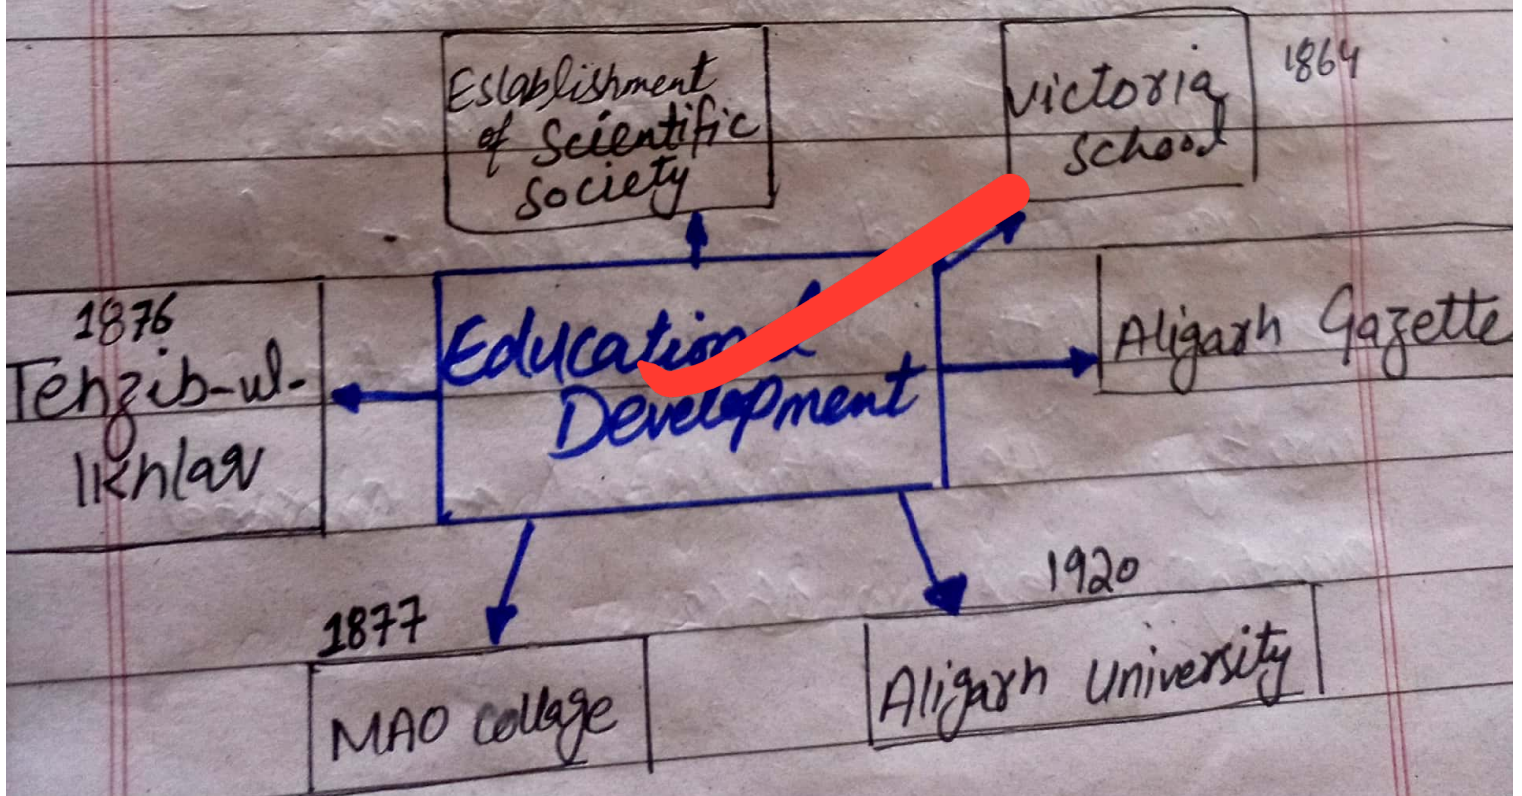 Establishment
of Scientific
Society
Victoria
School
1864
1876
Tehzib-ul-
Ikhlaq
Educational
Development
Aligarh Gazette
1877
MAO Collage
1920
Aligarh University